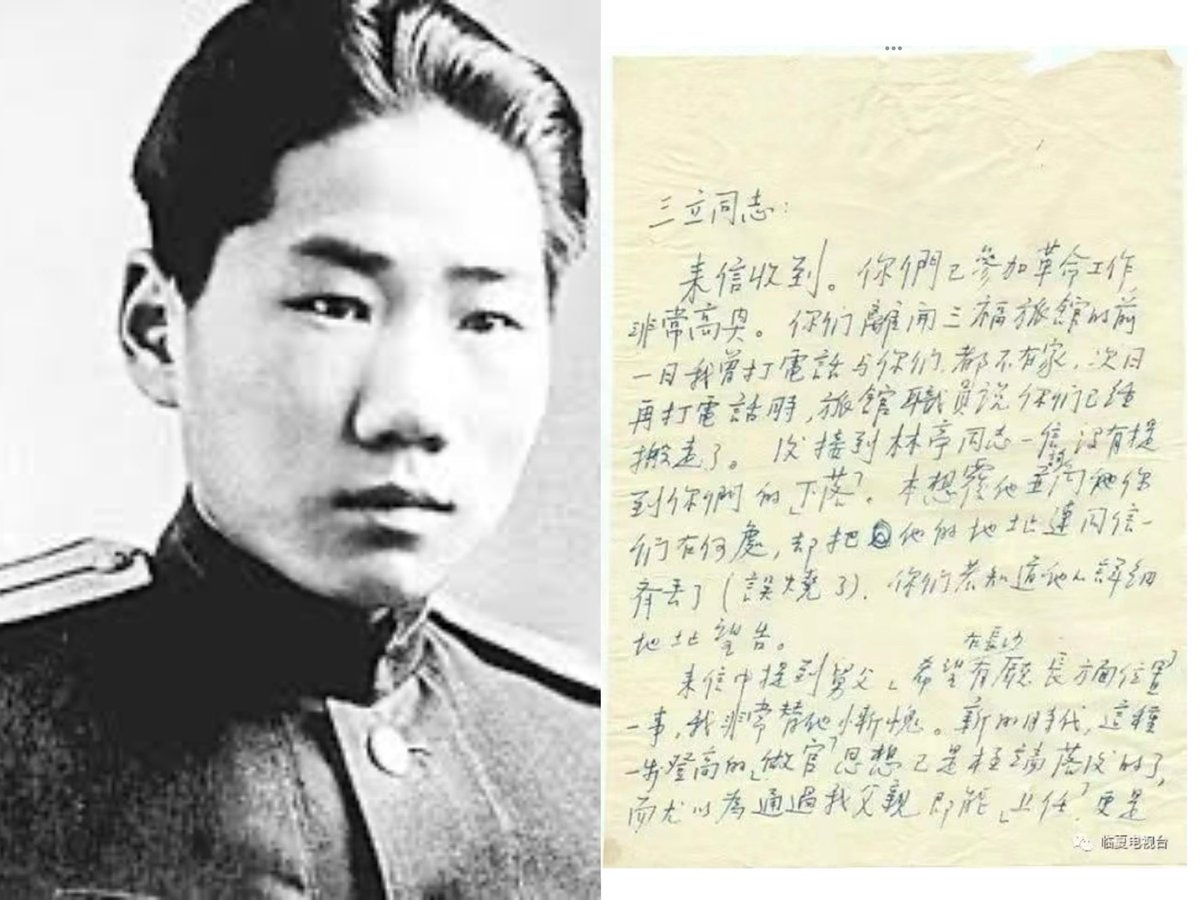 三立同志：
来信收到。你們已參加革命工作
非常高興。你们離開三福旅館的前
一日我曾打電話与你们，都不在家，次日
再打電話時，旅館職員說你们已经
搬走了。後接到林亭同志一信，沒有提
到你們的「下落」。本想覆他並詢他你
們在何處，却把他的地址連同信一
齊丢了（誤燒了）。你们若知道他的詳細
地址望告。
在長沙
来信中提到舅父「希望有廳長方面位置」
一事，我非常替他慚愧。新的時代，這種
一步登高的「做官」思想已是極端落後的了，
而尤以為通過我父親即能「上任」，更是
临夏电视台